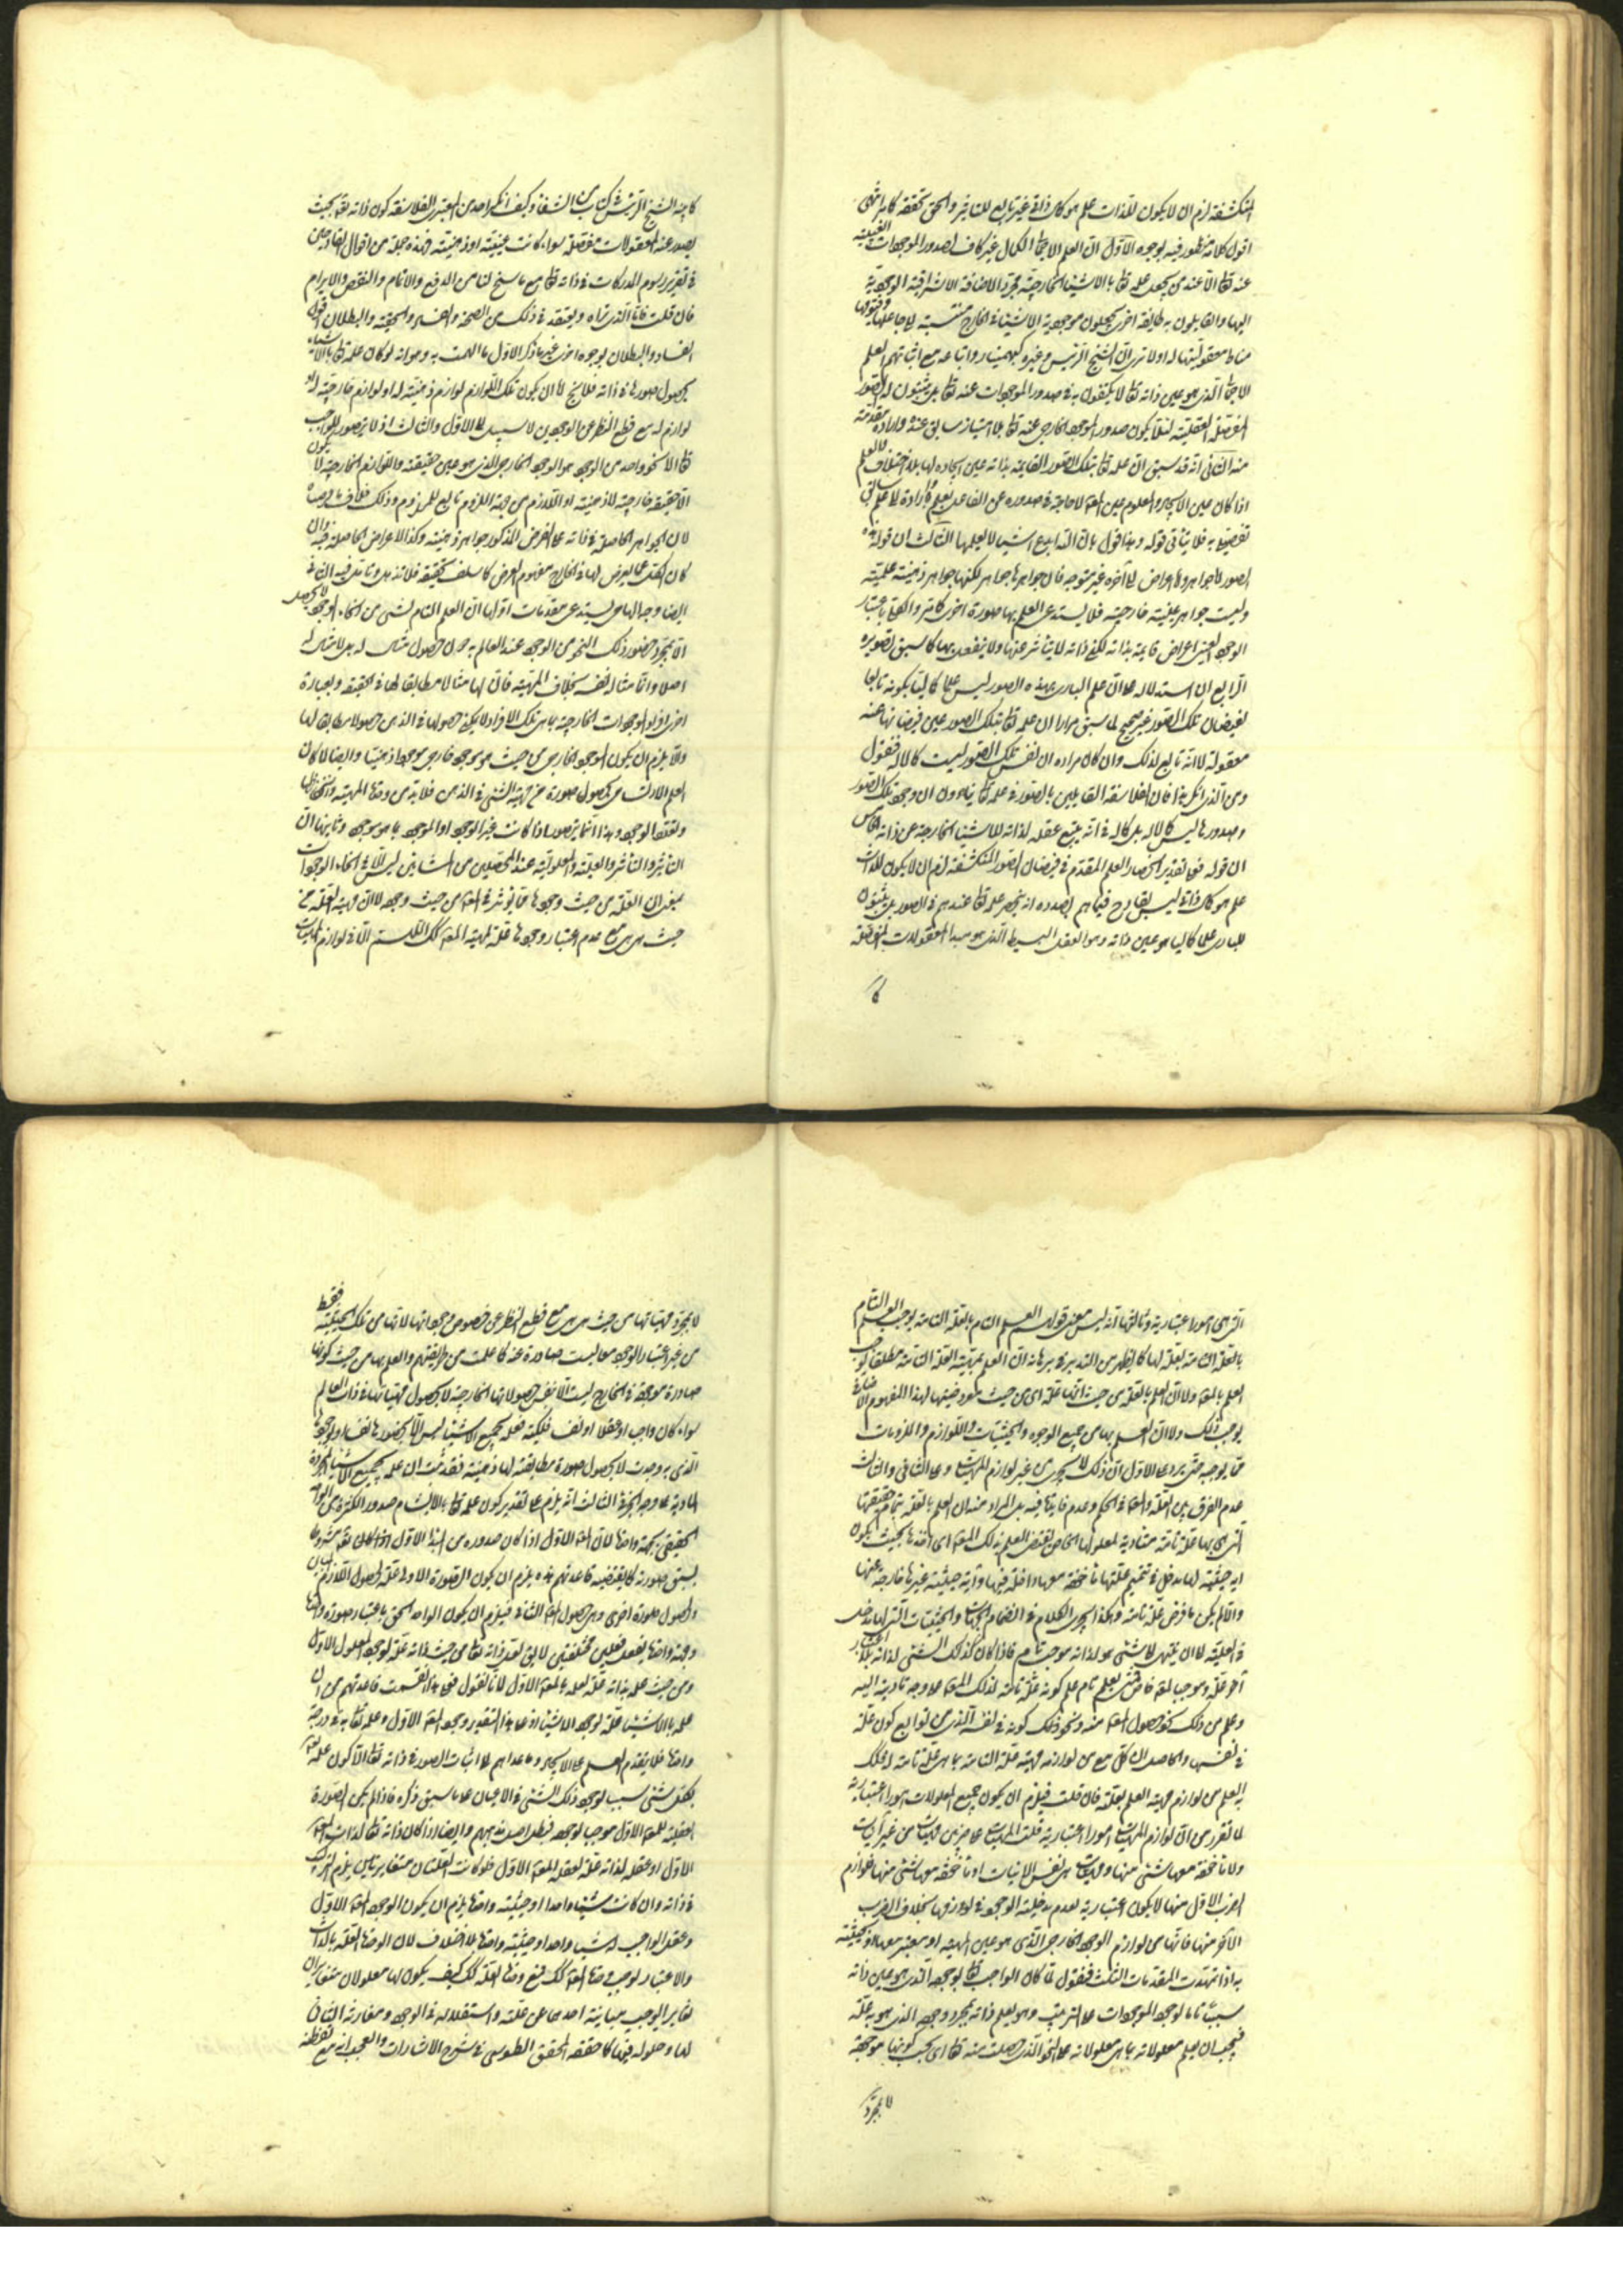 المنكشفة لزم ان لا يكون للذات علم هو كمال ذاتى غير تابع للتاثير والحق تحققه كما مر انتهى
اقول كلامه منظور فيه لوجوه الاول ان العلم الاجمالى الكمالى غير كاف لصدور الموجودات العينية
عنه تعالى الا عند من يجعل علمه تعالى بالاشياء الخارجية بمجرد الاضافة الاشراقية الوجودية
اليها والقايلون به طايفة اخرى يجعلون موجودية الاشياء فى الخارج منتسبة الى جاعلها
مناط معقوليتها له اولا ترى ان الشيخ الرئيس وغيره كبهمنيار واتباعه مع اثباتهم العلم
الاجمالى الذى هو عين ذاته تعالى لا يكتفون به فى صدور الموجودات عنه تعالى بل يثبتون له الصور
المفصلة العقلية لئلا يكون صدور الموجود الخارجى عنه تعالى بلا امتياز سابق عنده وارادة متقدمة
منه الثانى انه قد سبق ان علمه تعالى بتلك الصور القايمة بذاته عين ايجاده لها بلا اختلاف فالعلم
اذا كان عين الايجاد والمعلوم عين المعلول لا حاجة فى صدوره عن الفاعل بعلم وارادة الى علم سابق
تفصيلى به فلا ينافى قوله وهذا قول بان الله ابدع اشياء لا يعلمها الثالث ان قوله فهذه
الصور اما جواهر واما اعراض الى آخره غير متوجه فان جواهرها جواهر لكنها جواهر ذهنية علمية
وليست جواهر عينية خارجية فلا يستدعى العلم بها صورة اخرى كما مر والكل باعتبار
الوجود العينى اعراض قايمة بذاته لكن ذاته لا يتاثر عنها ولا ينفعل بها كما سبق تصويره
الرابع ان استدلاله على ان علم البارى بهذه الصور ليس علما كماليا بكونه تابعا
لفيضان تلك الصور غير صحيح لما سبق مرارا ان علمه تعالى بتلك الصور عين فيضانها عنه
معقولة لا انه تابع لذلك وان كان مراده ان نفس تلك الصور ليست كمالا له فنقول
ومن الذى انكر هذا فان الفلاسفة القايلين بالصور فى علمه تعالى ينادون ان وجود تلك الصور
وصدورها ليس كمالا له بل كماله فى انه يتبع عقله لذاته للاشياء الخارجة عن ذاته الخامس
ان قوله فعلى تقدير انحصار العلم المقدم فى فيضان الصور المنكشفة لزم ان لا يكون للذات
علم هو كمال ذاتى ليس بقادح فيما هم بصدده اذ لم ينحصر علمه تعالى عندهم فى الصور بل يثبتون
للبارى علما كماليا هو عين ذاته وهو العقل البسيط الذى هو مبدا المعقولات المفصلة
كما
كما بينه الشيخ الرئيس فى كتاب من الشفاء وكيف انكر احد من المعتبرين الفلاسفة كون ذاته تعالى بحيث
يصدر عنه المعقولات مفصلة سواء كانت عينية او ذهنية فهذه جملة من اقوال القادحين
فى تقرير رسوم المدركات فى ذاته تعالى مع ما سنح لنا من الدفع والاتمام والنقض والابرام
فان قلت فما الذى تراه وتعتقد فى ذلك من الصحة والفساد والحقية والبطلان اقول
الفساد والبطلان لوجوه اخرى غير ما ذكر الاول ما الهمت به وهو انه لو كان علمه تعالى بالاشياء
بحصول صورها فى ذاته فلا يخ اما ان يكون تلك اللوازم لوازم ذهنية له او لوازم خارجية له او
لوازم له مع قطع النظر عن الوجودين لا سبيل الى الاول والثالث اذ لا يتصور للواجب
تعالى الا نحو واحد من الوجود هو الوجود الخارجى الذى هو عين حقيقته واللوازم الخارجية لا يكون
الا حقيقة خارجية لا ذهنية اذ اللازم من جهة اللزوم تابع للملزوم وذلك خلاف ما فرضناه
لان الجواهر الحاصلة فى ذاته على الفرض المذكور جواهر ذهنية وكذا الاعراض الحاصلة فيه وان
كان الكل مما يعرض لها فى الخارج مفهوم العرض كما سلف تحقيقه فلا تذهل وتامل فيه الثانى
ايضا وجدانها من يستدعى مقدمات اولها ان العلم التام بشئ من انحاء الوجود لا يحصل
الا بمجرد حضور ذلك النحو من الوجود عند العالم به لا حصول مثاله له بل لا مثال له
اصلا وانما مثاله نفسه بخلاف المهية فان لها مثالا مطابقا لها فى الحقيقة وبعبارة
اخرى افراد الوجودات الخارجية بما هى تلك الافراد لا يمكن حصولها فى الذهن حصولا مطابقا لها
والا يلزم ان يكون الموجود الخارجى من حيث هو موجود خارجى موجودا ذهنيا وايضا لا كان
العلم الارتسامى بحصول صورة من مهية الشئ فى الذهن فلا بد من وحدة المهية وانحفاظها
وتعدد الوجود وهذا انما يتصور اذا كانت غير الوجود او الموجود بما هو موجود وثانيها ان
التاثير والتاثر والعلية والمعلولية عند المحصلين من المشائين ليس الا فى انحاء الوجودات
بمعنى ان العلة من حيث وجودها مما يؤثر فى المعلول من حيث وجوده لا ان مهية العلة من
حيث هى هى مع عدم اعتبار وجودها علة لمهية المعلول كك اللهم الا فى لوازم المهيات
التى هى امور اعتبارية وثالثها انه ليس معنى قولهم العلم التام بالعلة التامة يوجب العلم التام
بالعلة التامة لعلة لها كما يظهر من التدبر فى برهانه ان العلم بمهية العلة التامة مطلقا يوجب
العلم بالمعلول ولا ان العلم بالعلة من حيث انها علة اى من حيث معروضيتها لهذا المفهوم الاضافى
يوجب ذلك ولا ان العلم بها من جميع الوجوه والحيثيات واللوازم والملزومات
مما يوجبه حتى يرد على الاول ان ذلك لا يجرى فى غير لوازم المهيات وعلى الثانى والثالث
عدم الفرق بين العلة والمعلول فى الحكم وعدم فايدتها فيه بل المراد منه ان العلم بالعلة بتمام حقيقتها
التى هى بها علة تامة متادية لمعلولها الخاص يقتضى العلم بذلك المعلول اى اخذها بحيث يكون
اية حيثية لها مدخل فى تتميم علتها ماخوذة معها داخلة فيها واية حيثية غيرها خارجة عنها
والا لم يكن ما فرض علة تامة وهكذا يجرى الكلام فى انضمام الجهات والحيثيات التى لها مدخل
فى العلية الى ان ينتهى الى شئ هو لذاته موجب تام فاذا كان كذلك الشئ لذاته بلا اعتبار
آخر علة وموجبا لمعلول خاص فمتى يعلم تام علم كونه علة تامة لذلك المعلول على وجه تادية اليه
وعلم من ذلك نحو حصول المعلول منه ونحو ذلك كونه فى نفسه الذى من توابع كون علة
فى نفسها والحاصل ان كل ما هو من لوازم مهية علة التامة بما هى علة تامة لذلك
به العلم من لوازم مهية العلم بعلته فان قلت فيلزم ان يكون جميع المعلولات امورا اعتبارية
لما تقرر من ان لوازم المهيات امورا اعتبارية قلت المهيات على ضربين مهيات من غير آنيات
ولا ماخوذة معها شئ منها ومهيات هى نفس الانيات او ماخوذة معها شئ منها فلوازم
الضرب الاول منها لا يكون الا اعتبارية لعدم مدخلية الوجود فى لوازمها بخلاف الضرب
الآخر منها فانها من لوازم الوجود الخارجى الذى هو عين المهية او معتبر معها او بحيثية
به اذا تمهدت المقدمات الثلث فنقول لما كان الواجب تعالى لوجوده الذى هو عين ذاته
سببا تاما لوجود الموجودات على الترتيب وهو يعلم ذاته بمجرد وجوده الذى هو به علة
فيجب ان يعلم معلولاته بما هى معلولاته على النحو الذى حصلت منه تعالى اى بحسب كونها موجودة
لا بمجرد
لا بمجرد مهياتها من حيث هى هى مع قطع النظر عن خصوص وجوداتها لانها من تلك الحيثية فقط
من غير اعتبار الوجود معها ليست صادرة عنه كما علمت من طريقتهم والعلم بها من حيث كونها
صادرة موجودة فى الخارج ليست الا نفس حصولاتها الخارجية لا بحصول مهياتها فى ذات العالم
سواء كان واجبا او عقلا او نفسا فلكية فعلمه بجميع الاشياء ليس الا بحضورها نفسا او وجودها
الذى به وجدت لا بحصول صورة مطابقة لها ذهنية فقد ثبت ان علمه بجميع الاشياء المجردة
المادية على وجه الجزئى الثالث انه يلزم على تقدير كون علمه تعالى بالارتسام صدور الكثرة من الواحد
الحقيقى بجهة واحدة لان المعلول الاول اذا كان صدوره من المبدا الاول اذا كان مشروطا
بسبق صورته كما يقتضيه قاعدتهم هذه يلزم ان يكون الصورة الاولى علة لحصول اللازم المباين
ولحصول صورة اخرى وهى حصول المعلول الثانى فيلزم ان يكون الواحد الحق باعتبار صورة واحدة
وجهة واحدة يفعل فعلين مختلفين لا يق لعل ذاته تعالى من حيث ذاته علة لوجود المعلول الاول
ومن حيث علمه بذاته علة لعلمه بالمعلول الاول لانا نقول فعلى هذا تقسمت قاعدتهم من ان
علمه بالاشياء علة لوجود الاشياء اذ على هذا التقدير وجود المعلول الاول وعلمه تعالى به فى درجة
واحدة فلا يتقدم العلم على الايجاد وما دعاهم الى اثبات الصور فى ذاته تعالى الا كون علمه تعالى
بكل شئ سببا لوجود ذلك الشئ فى الاعيان على ما سبق ذكره فاذا لم يكن الصورة
العقلية للمعلول الاول موجبا لوجوده فبطل اصل مذهبهم وايضا اذا كان ذاته تعالى لذات المعلول
الاول او عقله لذاته علة لعقله المعلول الاول فلو كانت العلتان متغايرتين يلزم التركيب
فى ذاته وان كانت شيئا واحدا او حيثية واحدة يلزم ان يكون الوجود المعلول الاول
وعقل الواجب له شيئا واحدا وحيثية واحدة بلا اختلاف لان الوحدة العلة بالذات
والاعتبار يوجب وحدة المعلول كك فمع وحدة العلة كك كيف يكون لها معلولان متغايران
تغايرا يوجب مباينة احدهما عن علته واستقلاله فى الوجود ومقارنة الثانى
لها وحلوله فيها كما حققه المحقق الطوسى فى شرح الاشارات والعجب انه مع تفطنه